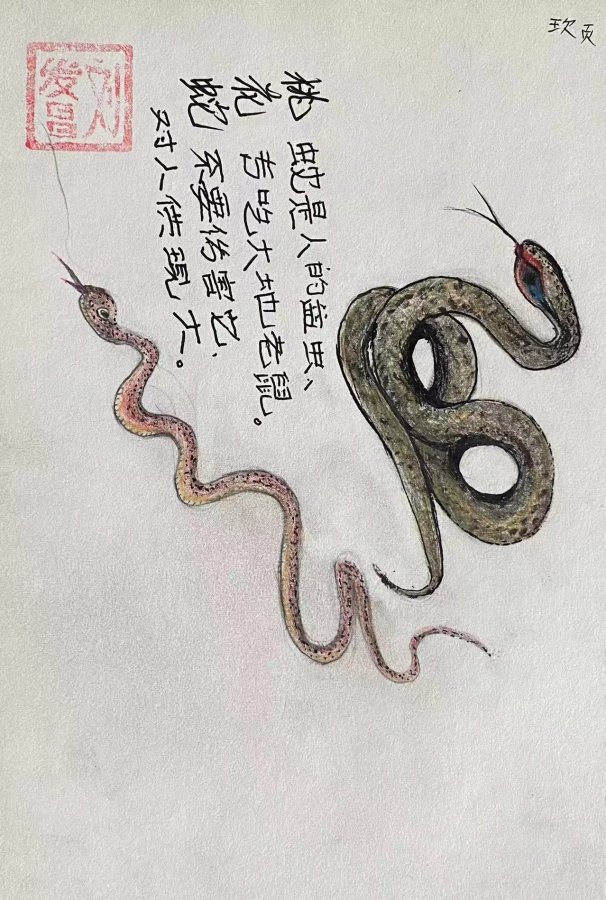 玖页
桃花蛇
蛇是人的益虫、
专吃大地老鼠。
不要伤害它、
对人供现大。
刘发昌